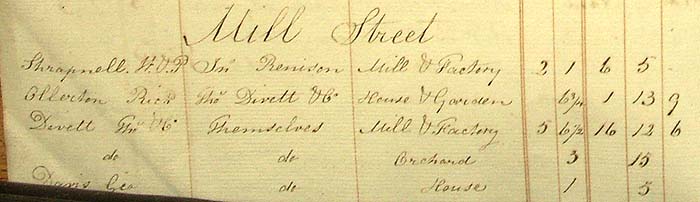 Mill Street
Shrapnell H.S.P Jnº Renison Mill & Factory 2 1 6 5
Ollerton Richd Thº Divett & Cº House & Garden 6½ 1 13 9
Divett Thº & Cº Themselves Mill & Factory 5 6½ 16 12 6
do do Orchard 3 15
Davis Geo do House 1 5